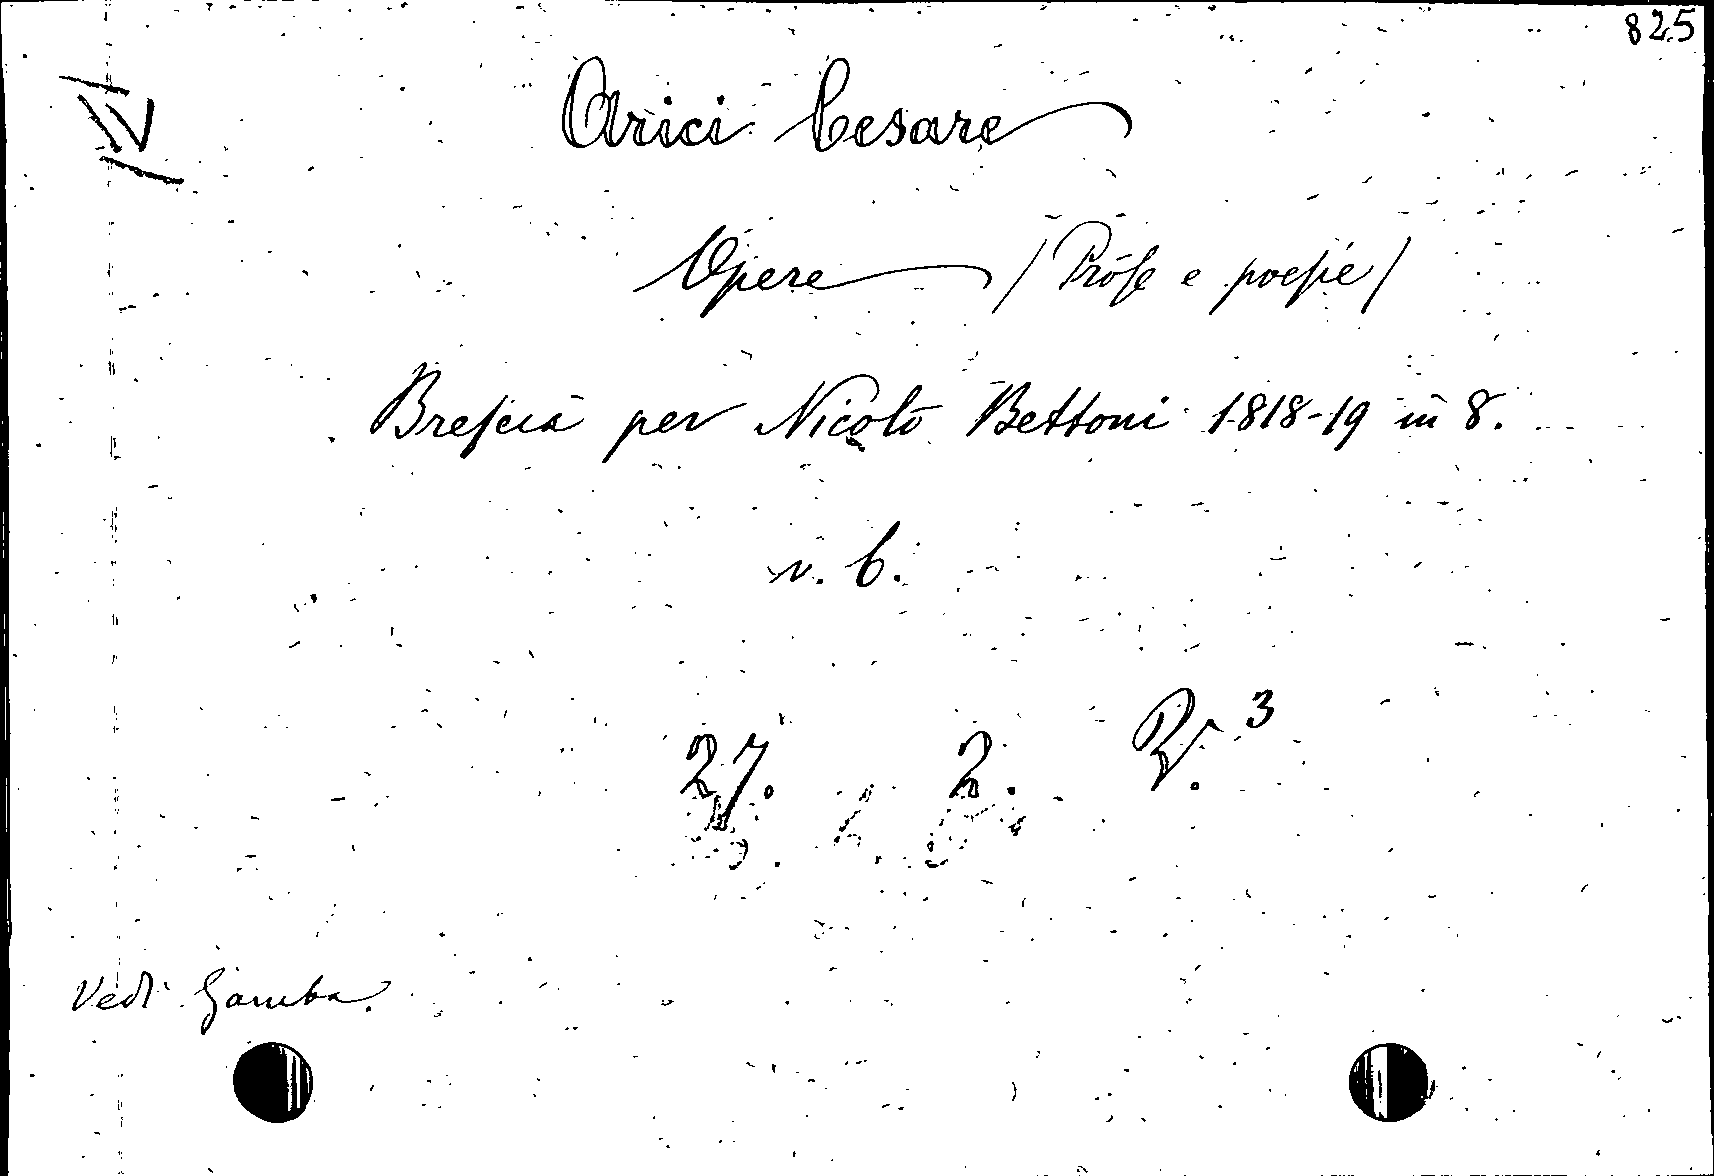 825
IV
Arici Cesare
Opere (Prose e poesie)
Brescia per Nicolò Bettoni 1818-19 in 8.
v. 6.
27. 2. 3
Vedi Gamba.